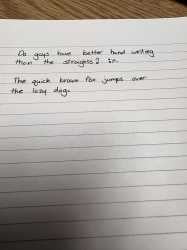 Do guys have better hand writing
than the straights? in
The quick brown fox jumps over
the lazy dog.